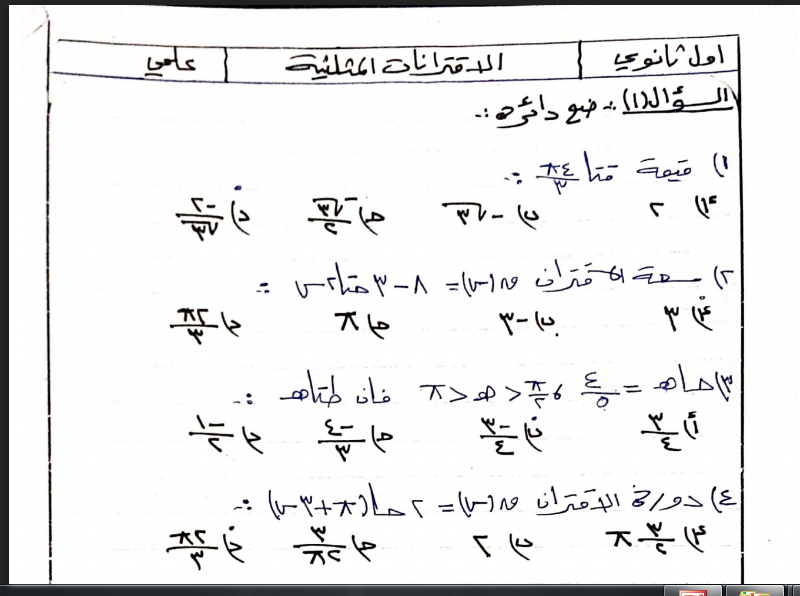 اول ثانوي | الاقترانات المثلثية | علمي
السؤال (١) :- ضع دائرة :-
١) قيمة قتا ٤π/٣ :-
أ) ٢ ب) -√٣ جـ) √٣/٢ د) -٢/√٣
٢) سعة الاقتران ق(س) = ٨ - ٣ جتا ٢س :-
أ) ٣ ب) -٣ جـ) π د) ٢π/٣
٣) جا هـ = ٤/٥ ، π/٢ < هـ < π فان ظتا هـ :-
أ) ٣/٤ ب) -٣/٤ جـ) -٤/٣ د) -١/٢
٤) دورة الاقتران ق(س) = ٢ جا (π + ٣س) :-
أ) ٣/٢ π ب) ٢ جـ) ٣/٢π د) ٢π/٣